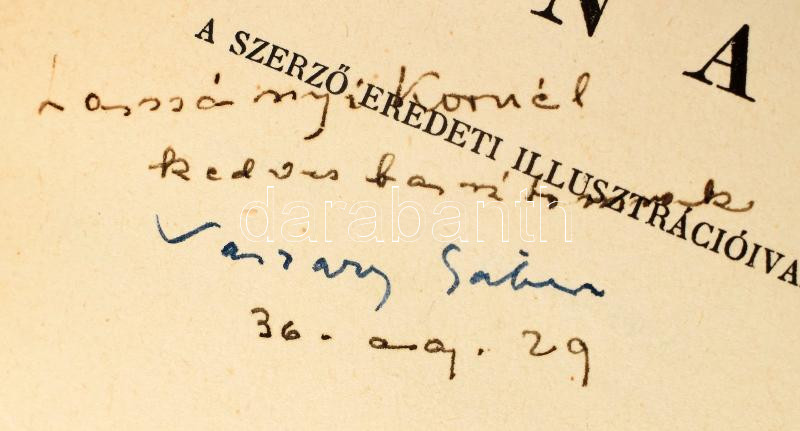 N A
A SZERZŐ EREDETI ILLUSZTRÁCIÓIVA
Lassányi Kornél
kedves barátomnak
Vaszary Gábor
36. aug. 29
darabanth